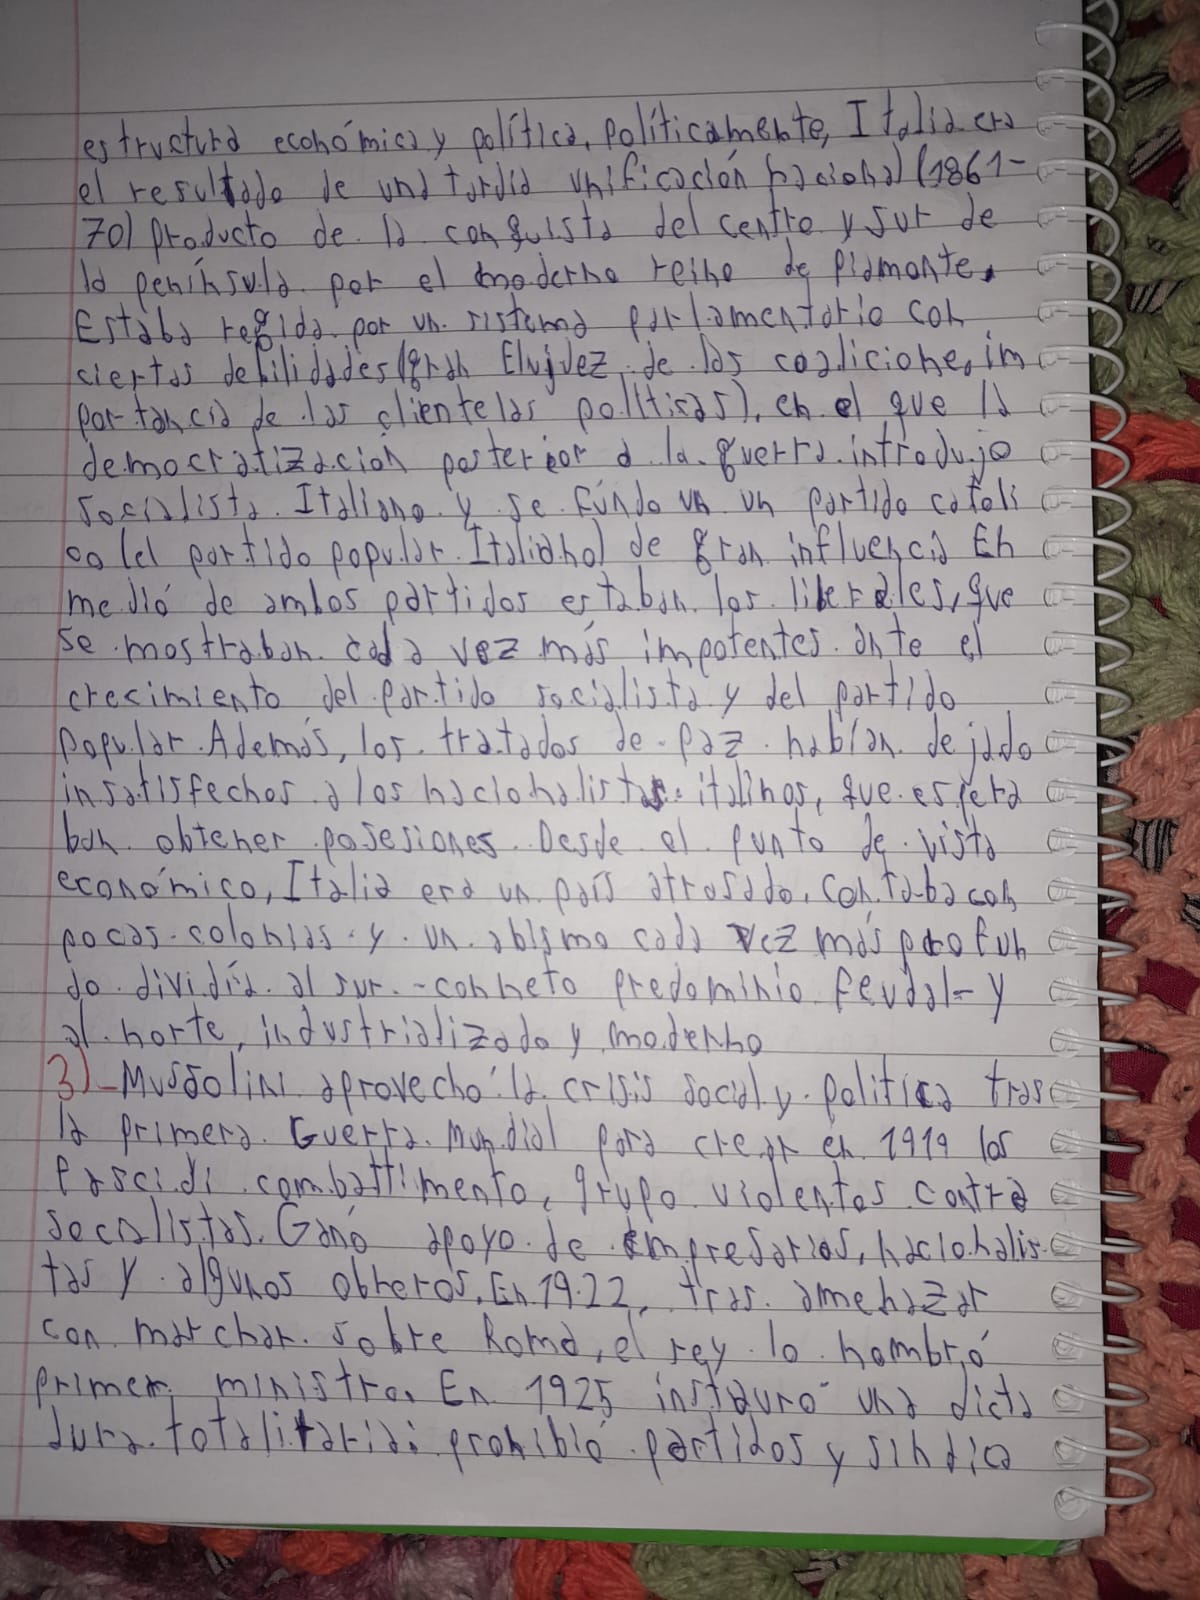 estructura económica y política, políticamente, Italia era
el resultado de una tardía unificación nacional (1861-
70) producto de la conquista del centro y sur de
la península por el moderno reino de Piamonte.
Estaba regida por un sistema parlamentario con
ciertas debilidades (gran de las coalicione, im
portancia de las clientelas políticas), en el que la
democratización posterior a la guerra introdujo
socialista Italiano y se fundo un un partido catoli
co (el partido popular Italiano) de gran influencia En
medio de ambos partidos estaban los liberales, que
se mostraban cada vez más impotentes ante el
crecimiento del partido socialista y del partido
popular. Además, los tratados de paz habían dejado
insatisfechos a los nacionalistas italinos, que espera
ban obtener posesiones. Desde el punto de vista
económico, Italia era un país atrasado, contaba con
pocas colonias y un abismo cada vez más profun
do dividía al sur -con neto predominio feudal- y
al norte, industrializado y moderno
3)- Mussolini aprovechó la crisis social y política tras
la primera Guerra Mundial para crear en 1919 los
Fasci di combattimento, grupo violentos contra
socialistas. Ganó apoyo de empresarios, nacionalis
tas y algunos obreros, En 1922, tras amenazar
con marchar sobre Roma, el rey lo nombró
primer ministro. En 1925 instauró una dicta
dura totalitaria: prohibió partidos y sindica